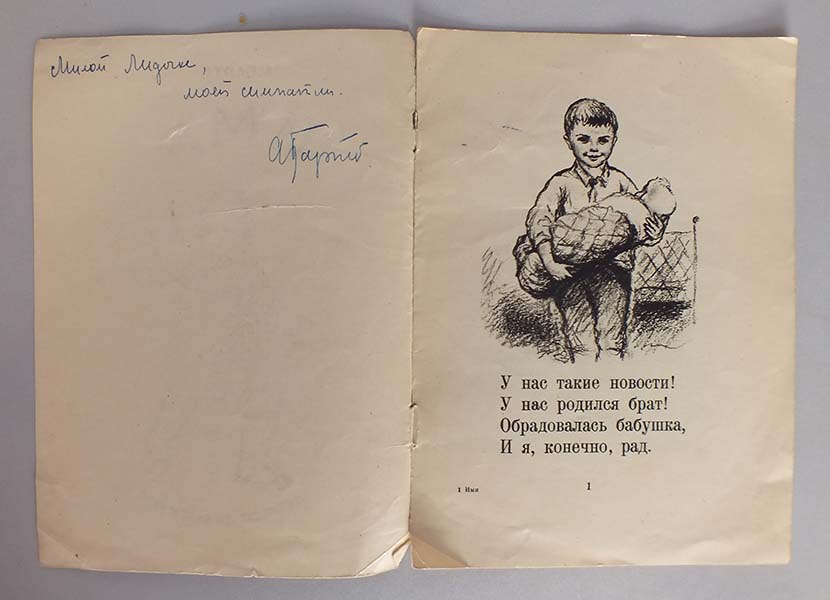 Милой Лидочке,
моей симпатии.
АБарто
У нас такие новости!
У нас родился брат!
Обрадовалась бабушка,
И я, конечно, рад.
1 Имя
1